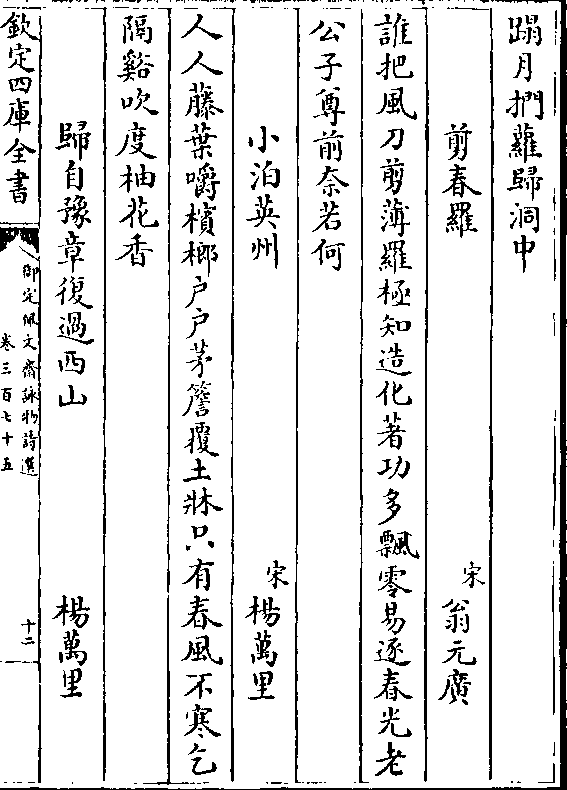 蹋月捫蘿歸洞中
剪春羅 宋 翁元廣
誰把風刀剪薄羅極知造化著功多飄零易逐春光老
公子尊前奈若何
小泊英州 宋 楊萬里
人人藤葉嚼檳榔户户茅簷覆土牀只有春風不寒乞
隔谿吹度柚花香
歸自豫章復過西山 楊萬里
欽定四庫全書
御定佩文齋詠物詩選
卷三百七十五
十二